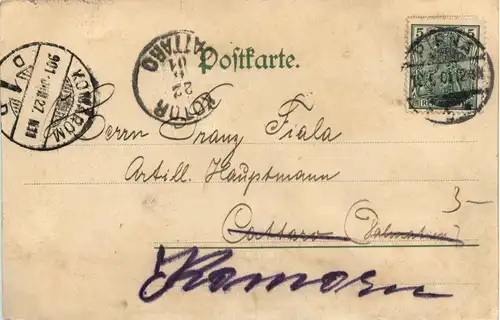 Postkarte.
5 5
KOTOR
22
6
01
CATTARO
KOMÁROM
901
D
Herrn Franz Fiala
Artill. Hauptmann
3-
Cattaro (Dalmatien)
Komorn